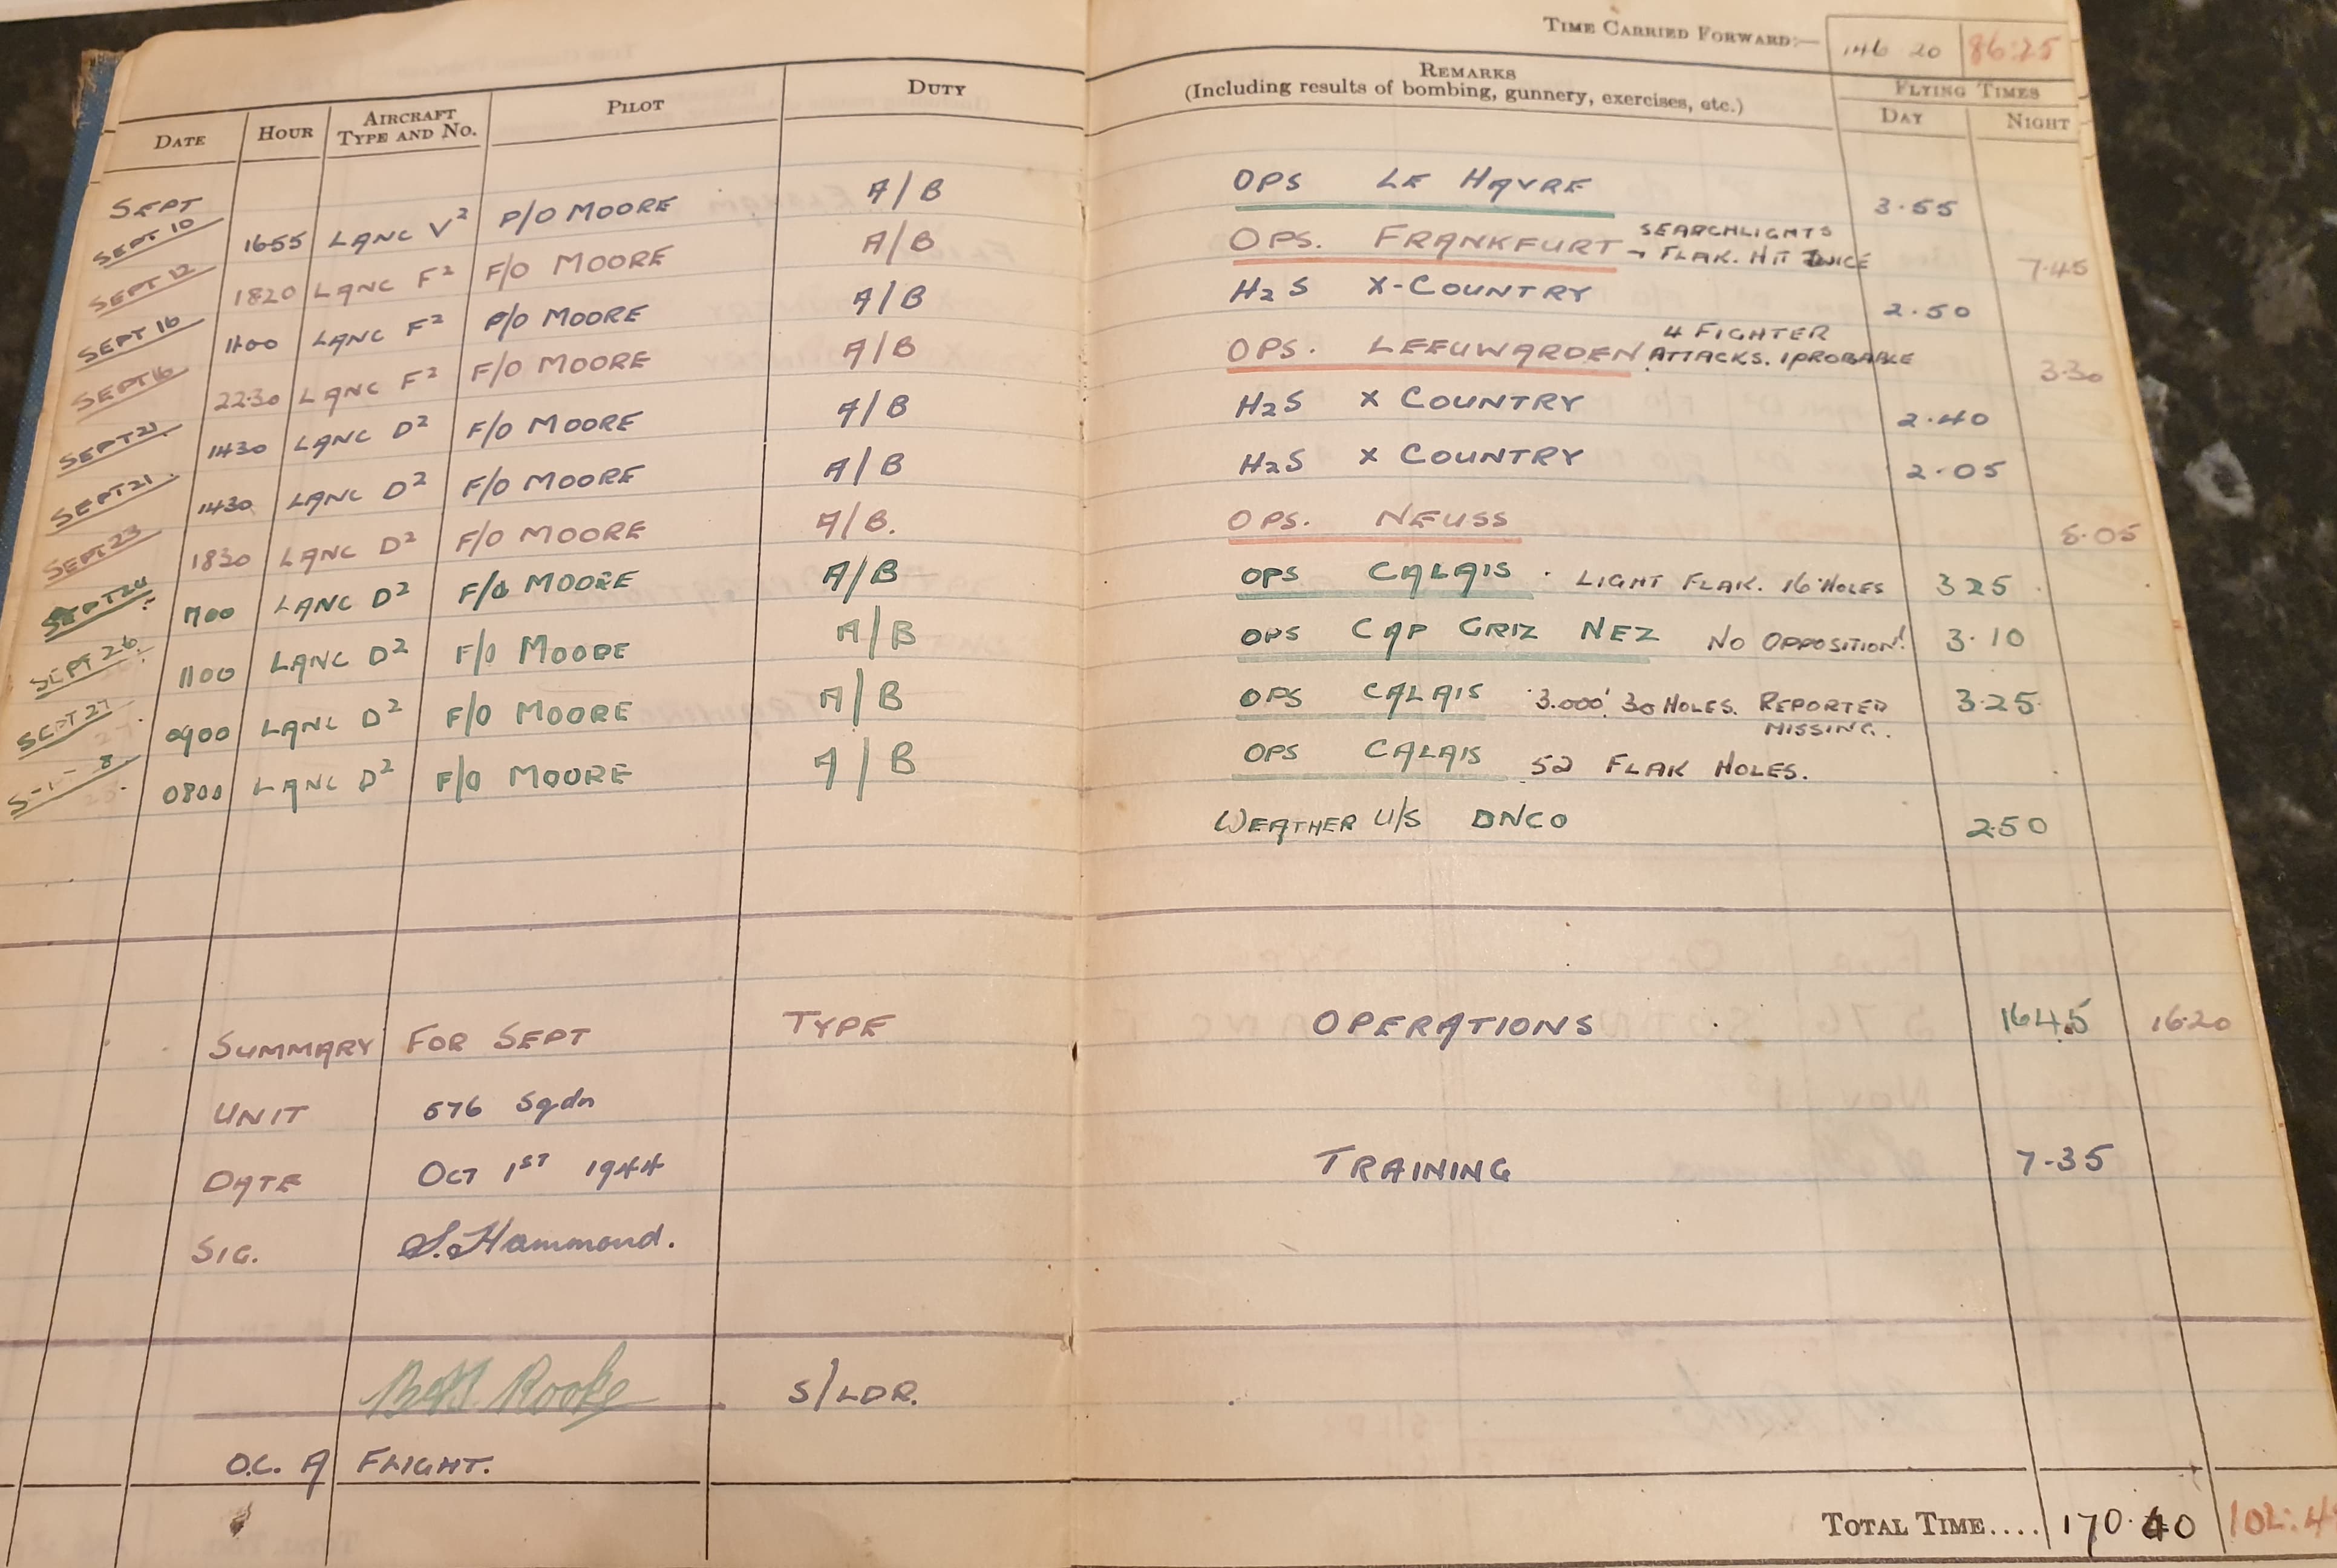 TIME CARRIED FORWARD:— 146 20 86:25
DATE HOUR AIRCRAFT TYPE AND NO. PILOT DUTY REMARKS (Including results of bombing, gunnery, exercises, etc.) FLYING TIMES
DAY NIGHT
SEPT
SEPT 10 1655 LANC V² P/O MOORE A/B OPS LE HAVRE 3.55
SEPT 12 1820 LANC F² F/O MOORE A/B OPS. FRANKFURT - SEARCHLIGHTS FLAK. HIT TWICE 7.45
SEPT 16 1100 LANC F² P/O MOORE A/B H2S X-COUNTRY 2.50
SEPT 16 2230 LANC F² F/O MOORE A/B OPS. LEEUWARDEN. 4 FIGHTER ATTACKS. 1 PROBABLE 3.30
SEPT 21 1430 LANC D² F/O MOORE A/B H2S X COUNTRY 2.40
SEPT 21. 1430 LANC D² F/O MOORE A/B H2S X COUNTRY 2.05
SEPT 23 1830 LANC D² F/O MOORE A/B. OPS. NEUSS 5.05
SEPT 24 1700 LANC D² F/O MOORE A/B OPS CALAIS. LIGHT FLAK. 16 HOLES 325
SEPT 26. 1100 LANC D² F/O MOORE A/B OPS CAP GRIZ NEZ NO OPPOSITION! 3.10
SEPT 27 0900 LANC D² F/O MOORE A/B OPS CALAIS 3.000' 30 HOLES. REPORTED MISSING. 3.25
0800 LANC D² F/O MOORE A/B OPS CALAIS 52 FLAK HOLES.
WEATHER U/S DNCO 2.50
SUMMARY FOR SEPT TYPE OPERATIONS 1645 1620
UNIT 576 Sqdn
DATE OCT 1ST 1944 TRAINING 7.35
SIG. S. Hammond.
Rooke S/LDR.
O.C. A FLIGHT.
TOTAL TIME.... 170.40